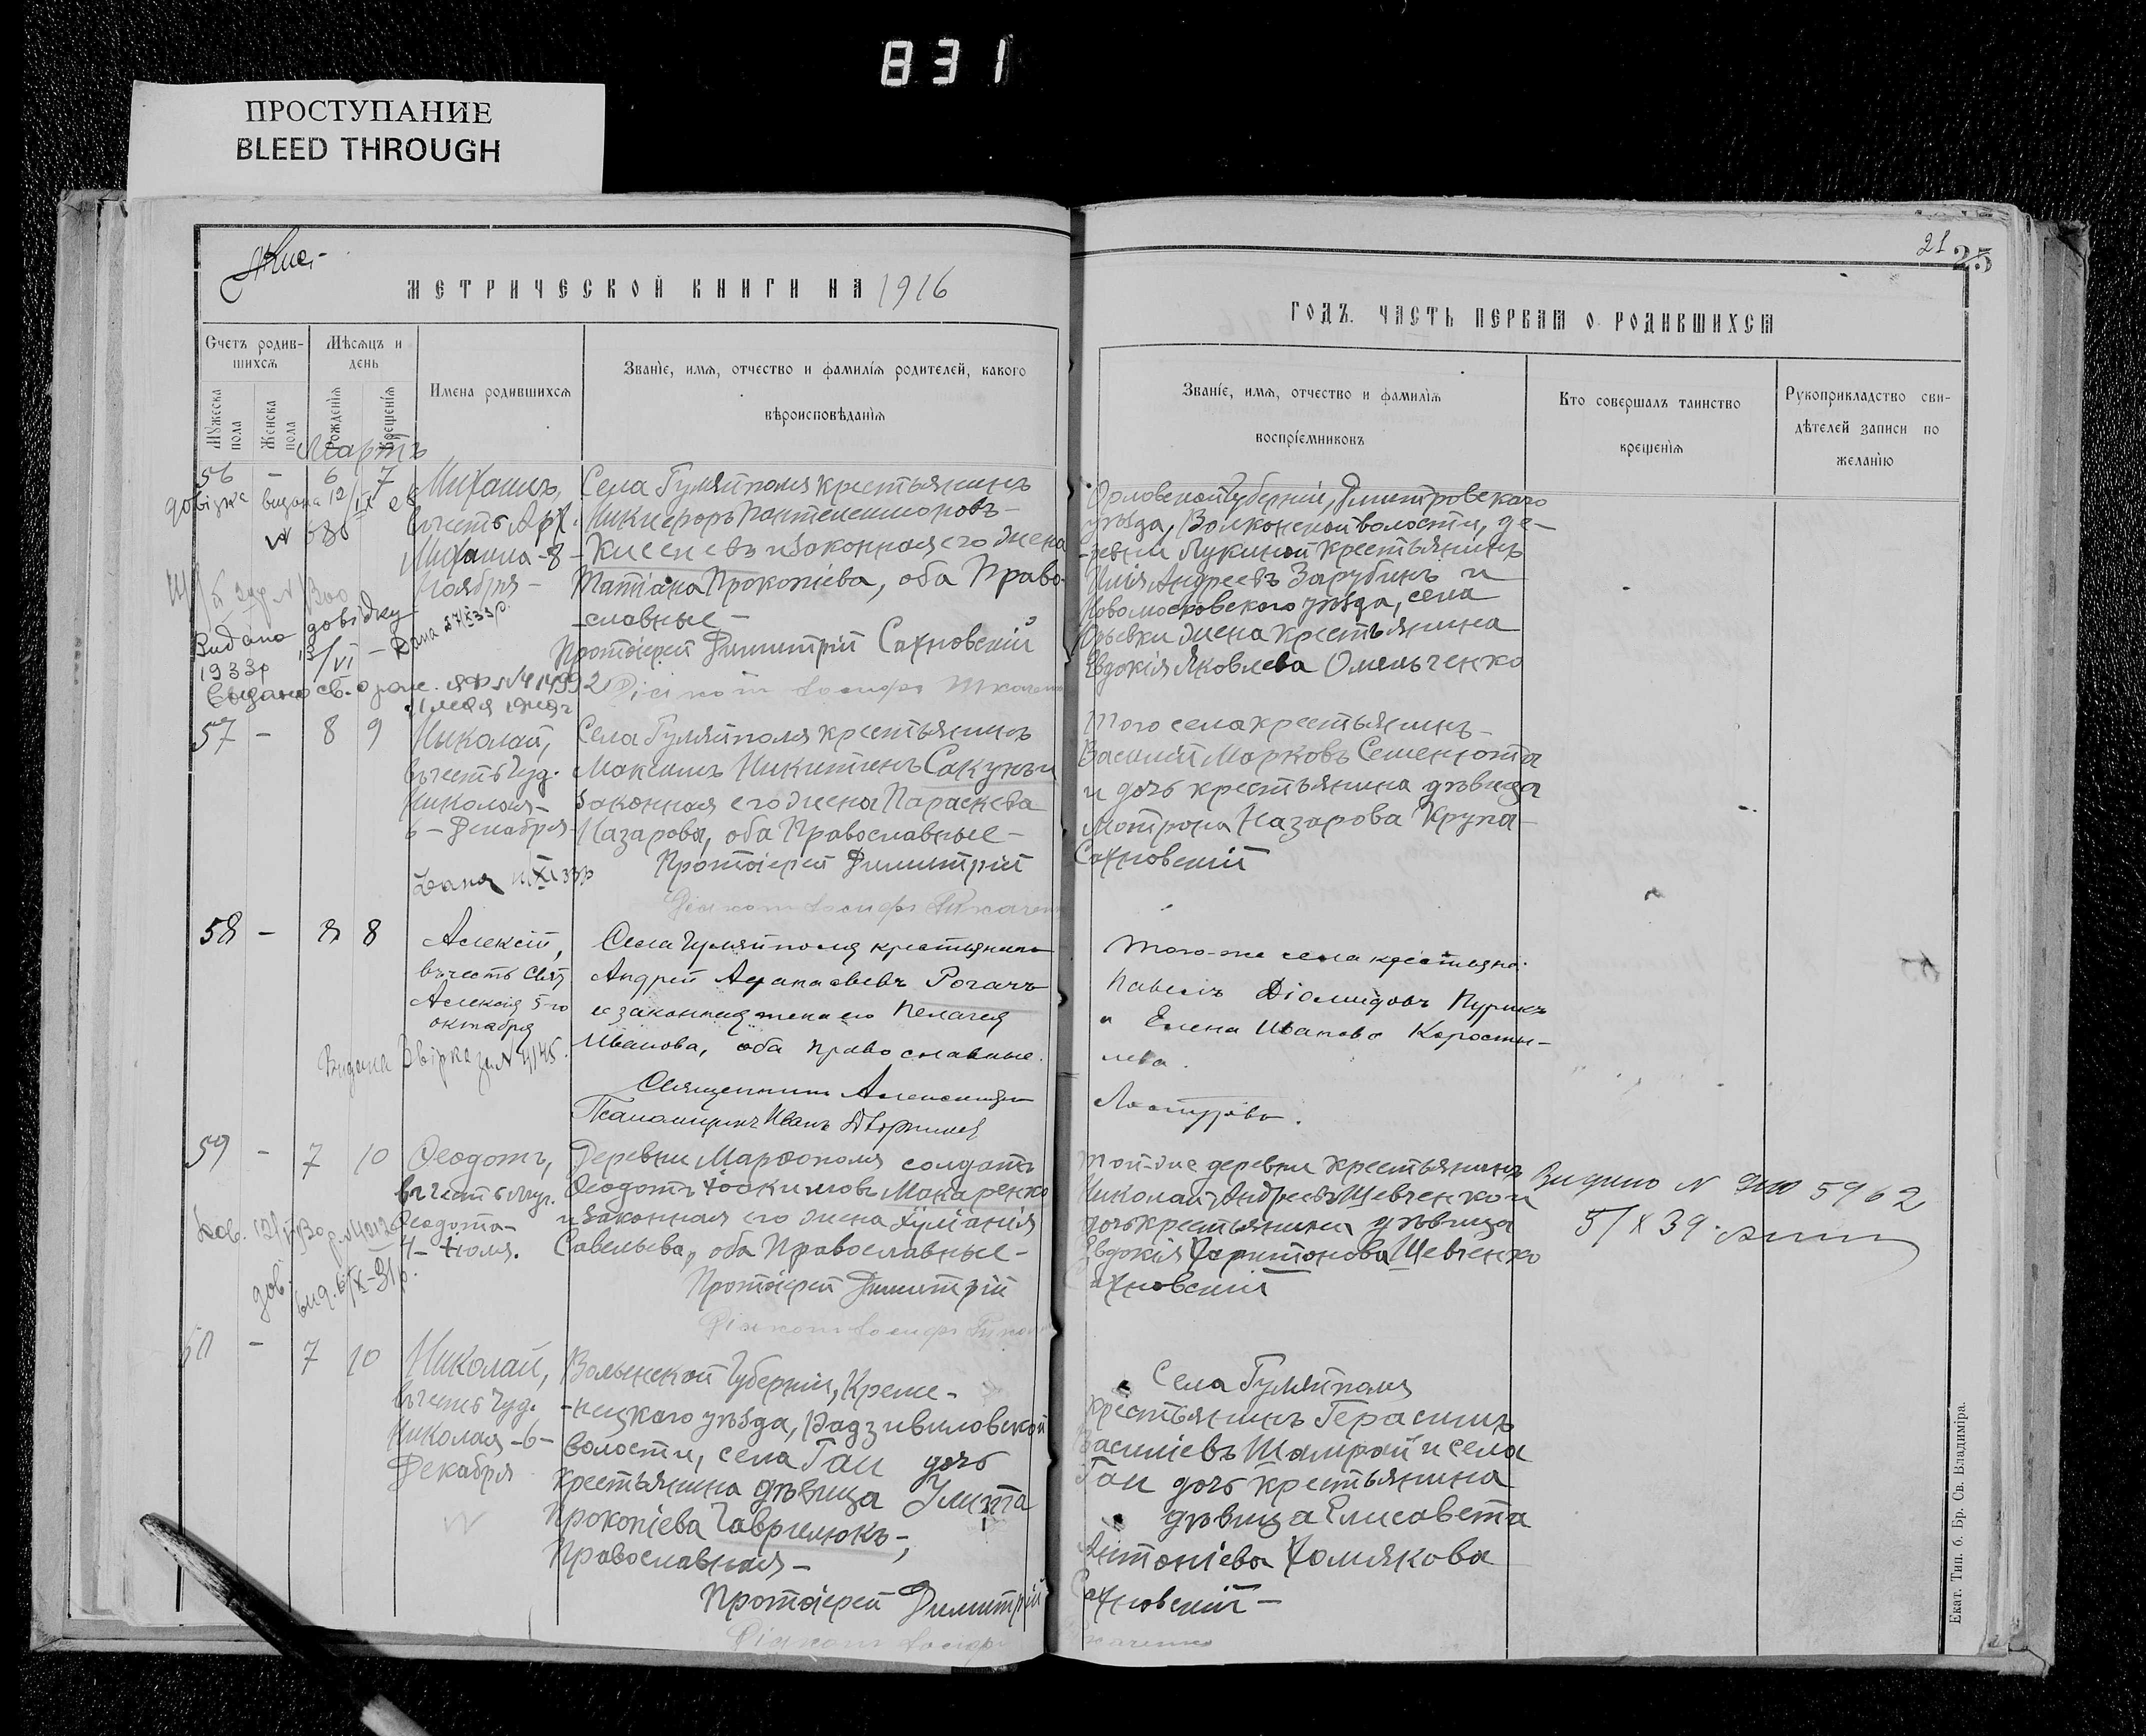 831
ПРОСТУПАНИЕ
BLEED THROUGH
21
25
МЕТРИЧЕСКОЙ КНИГИ НА 1916
ГОДЪ. ЧАСТЬ ПЕРВАЯ О РОДИВШИХСЯ
Счетъ родив-
шихся
Мѣсяцъ и
день
Мужеска
пола
Женска
пола
Рожденія
Крещенія
Имена родившихся
Званіе, имя, отчество и фамилія родителей, какого
вѣроисповѣданія
Званіе, имя, отчество и фамилія
воспріемниковъ
Кто совершалъ таинство
крещенія
Рукоприкладство сви-
дѣтелей записи по
желанію
Мартъ
56 - 6 7
Михаилъ,
въ честь Арх.
Михаила - 8 -
Ноября -
Села Гуляйполя крестьянинъ
Никифоръ Пантелеимоновъ -
Киселевъ и законная его жена
Татіана Прокопіева, оба Право-
-славные -
Протоіерей Димитрій Сахновскій
Орловской Губерніи, Дмитровскаго
уѣзда, Волконской волости, де-
-ревни Лукиной крестьянинъ
Илія Андреевъ Зарубинъ и
Новомосковскаго уѣзда, села
жена крестьянина
Евдокія Яковлева Омельченко
довізка видана 12/IX
Видано довідку
1933р 13/VI - Дана
57 - 8 9
Николай,
въ честь Чуд.
Николая -
6 - Декабря -
Села Гуляйполя крестьянинъ
Максимъ Никитинъ Сакунъ и
законная его жена Параскева
Назарова, оба Православные -
Протоіерей Димитрій
Того села крестьянинъ -
Василій Марковъ Семенюта
и дочь крестьянина дѣвица
Мотрона Назарова Крупа -
Сахновскій
Дана
58 - 8 8
Алексій,
въ честь Свят
Алексія 5-го
октября
Села Гуляйполя крестьянинъ
Андрей Афанасьевъ Рогачъ
и законная жена его Пелагея
Иванова, оба православные.
Священникъ Александръ
Псаломщикъ Иванъ
Того-же села крестьяне:
Павелъ Діомидовъ Пурикъ
и Елена Иванова Коросты-
лева.
59 - 7 10
Феодотъ,
въ честь Муч.
Феодота -
4 - Іюля.
Деревни Марфополя солдатъ
Феодотъ Іоакимовъ Макаренко
и законная его жена Іуліанія
Савельева, оба Православные -
Протоіерей Димитрій
Той-же деревни крестьянинъ
Николай Андреевъ Шевченко и
дочь крестьянина дѣвица
Евдокія Харитонова Шевченко
Сахновскій
Видано N 5962
5/X 39
60 - 7 10
Николай,
въ честь Чуд.
Николая - 6 -
Декабря
Волынской Губерніи, Креме-
-нецкаго уѣзда, Радзивиловской
волости, села Гаи дочь
крестьянина дѣвица Улита
Прокопіева Гаврилюкъ -,
Православная -
Протоіерей Димитрій
Села Гуляйполя
крестьянинъ Герасимъ
Василіевъ Шамрай и села
Гаи дочь крестьянина
дѣвица Елисавета
Антоніева Хомякова
Сахновскій -
Екат. Тип. б. Бр. Св. Владиміра.